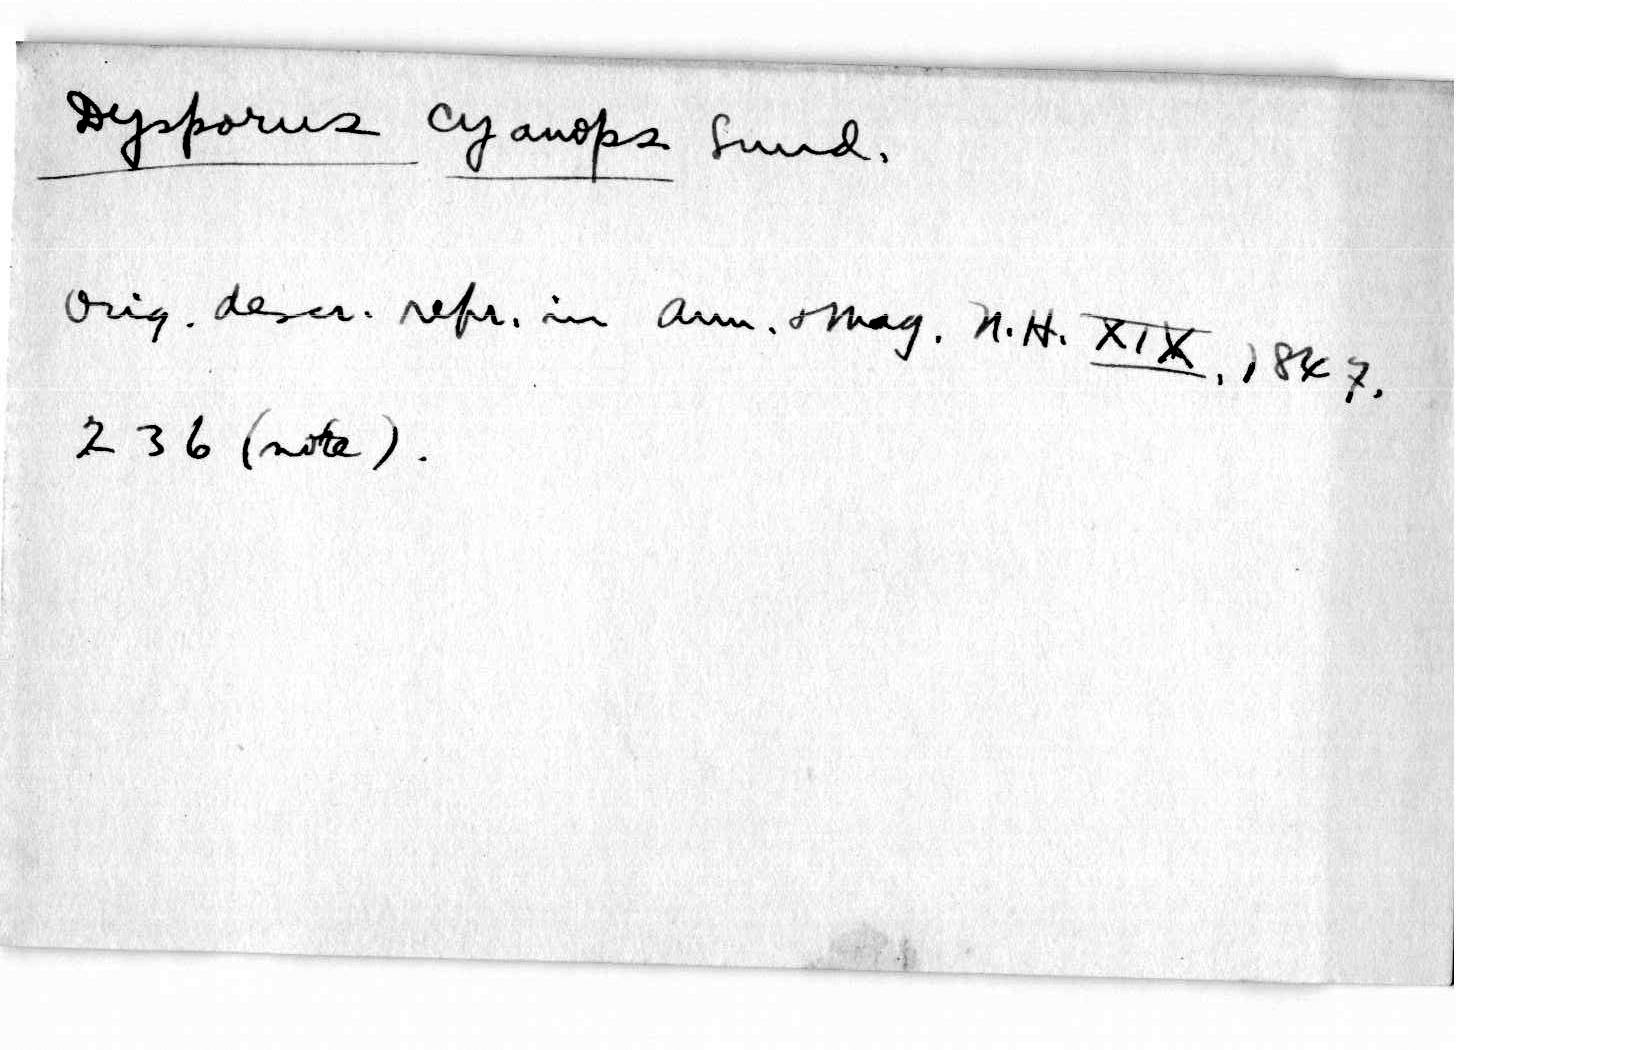 Dysporus cyanops Sund.
Orig. descr. repr. in Ann. & Mag. N.H. XIX, 1847,
236 (note).